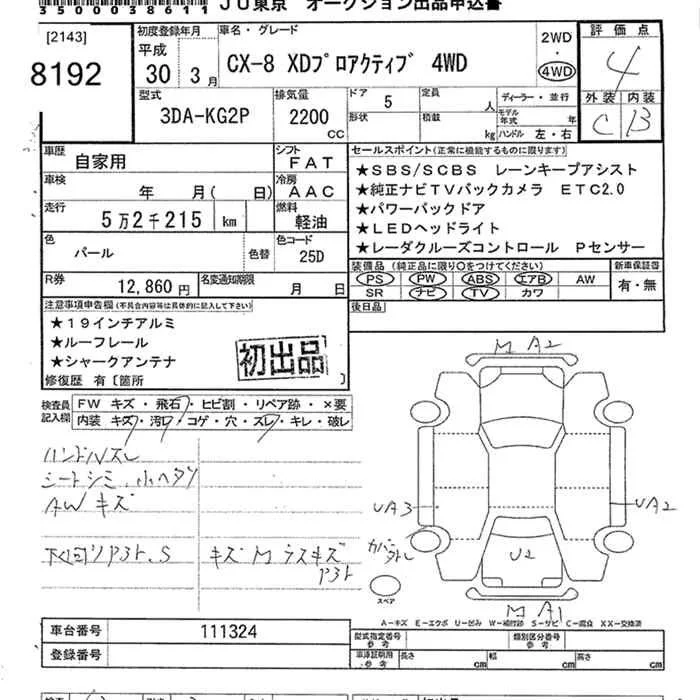 3500038611 JU東京 オークション出品申込書
[2143]
8192
初度登録年月
平成
30年 3月
車名・グレード
CX-8 XDプロアクティブ 4WD
2WD
・
4WD
評価点
4
外装 内装
C B
型式
3DA-KG2P
排気量
2200
CC
ドア 5
形状
定員 人
積載 kg
ディーラー・並行
モデル年式 年
ハンドル 左・右
車歴
自家用
シフト
FAT
車検
年 月( 日)
冷房
AAC
走行
5万2千215 km
燃料
軽油
色
パール
色替
色コード
25D
R券
12,860円
名変通知期限
月 日
セールスポイント(正常に機能するものに限ります)
★SBS/SCBS レーンキープアシスト
★純正ナビTVバックカメラ ETC2.0
★パワーバックドア
★LEDヘッドライト
★レーダクルーズコントロール Pセンサー
装備品(純正品に限り○をつけてください)
PS PW ABS エアB AW
SR ナビ TV カワ
新車保証書
有・無
後日品
注意事項申告欄(不具合内容等は具体的に記入して下さい)
★19インチアルミ
★ルーフレール
★シャークアンテナ
初出品
修復歴 有〔箇所 〕
検査員記入欄
FW キズ・飛石・ヒビ割・リペア跡・×要
内装 キズ・汚れ・コゲ・穴・スレ・キレ・破レ
ハンドルスレ
シートシミ、小ヘタリ
AWキズ
下回りサビ、S
キズ M ラスキズ
M A2
UA3
UA2
カバー外れ
U2
スペア
M A1
A-キズ E-エクボ U-凹み W-補修跡 S-サビ C-腐食 XX-交換済
車台番号 111324
登録番号
型式指定番号
参考
類別区分番号
参考
車庫証明用
参考
長さ cm 幅 cm 高さ cm